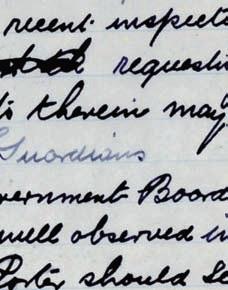 recent inspect
requesti
ts therein may
Guardians
vernment Board
well observed i
Porter should se